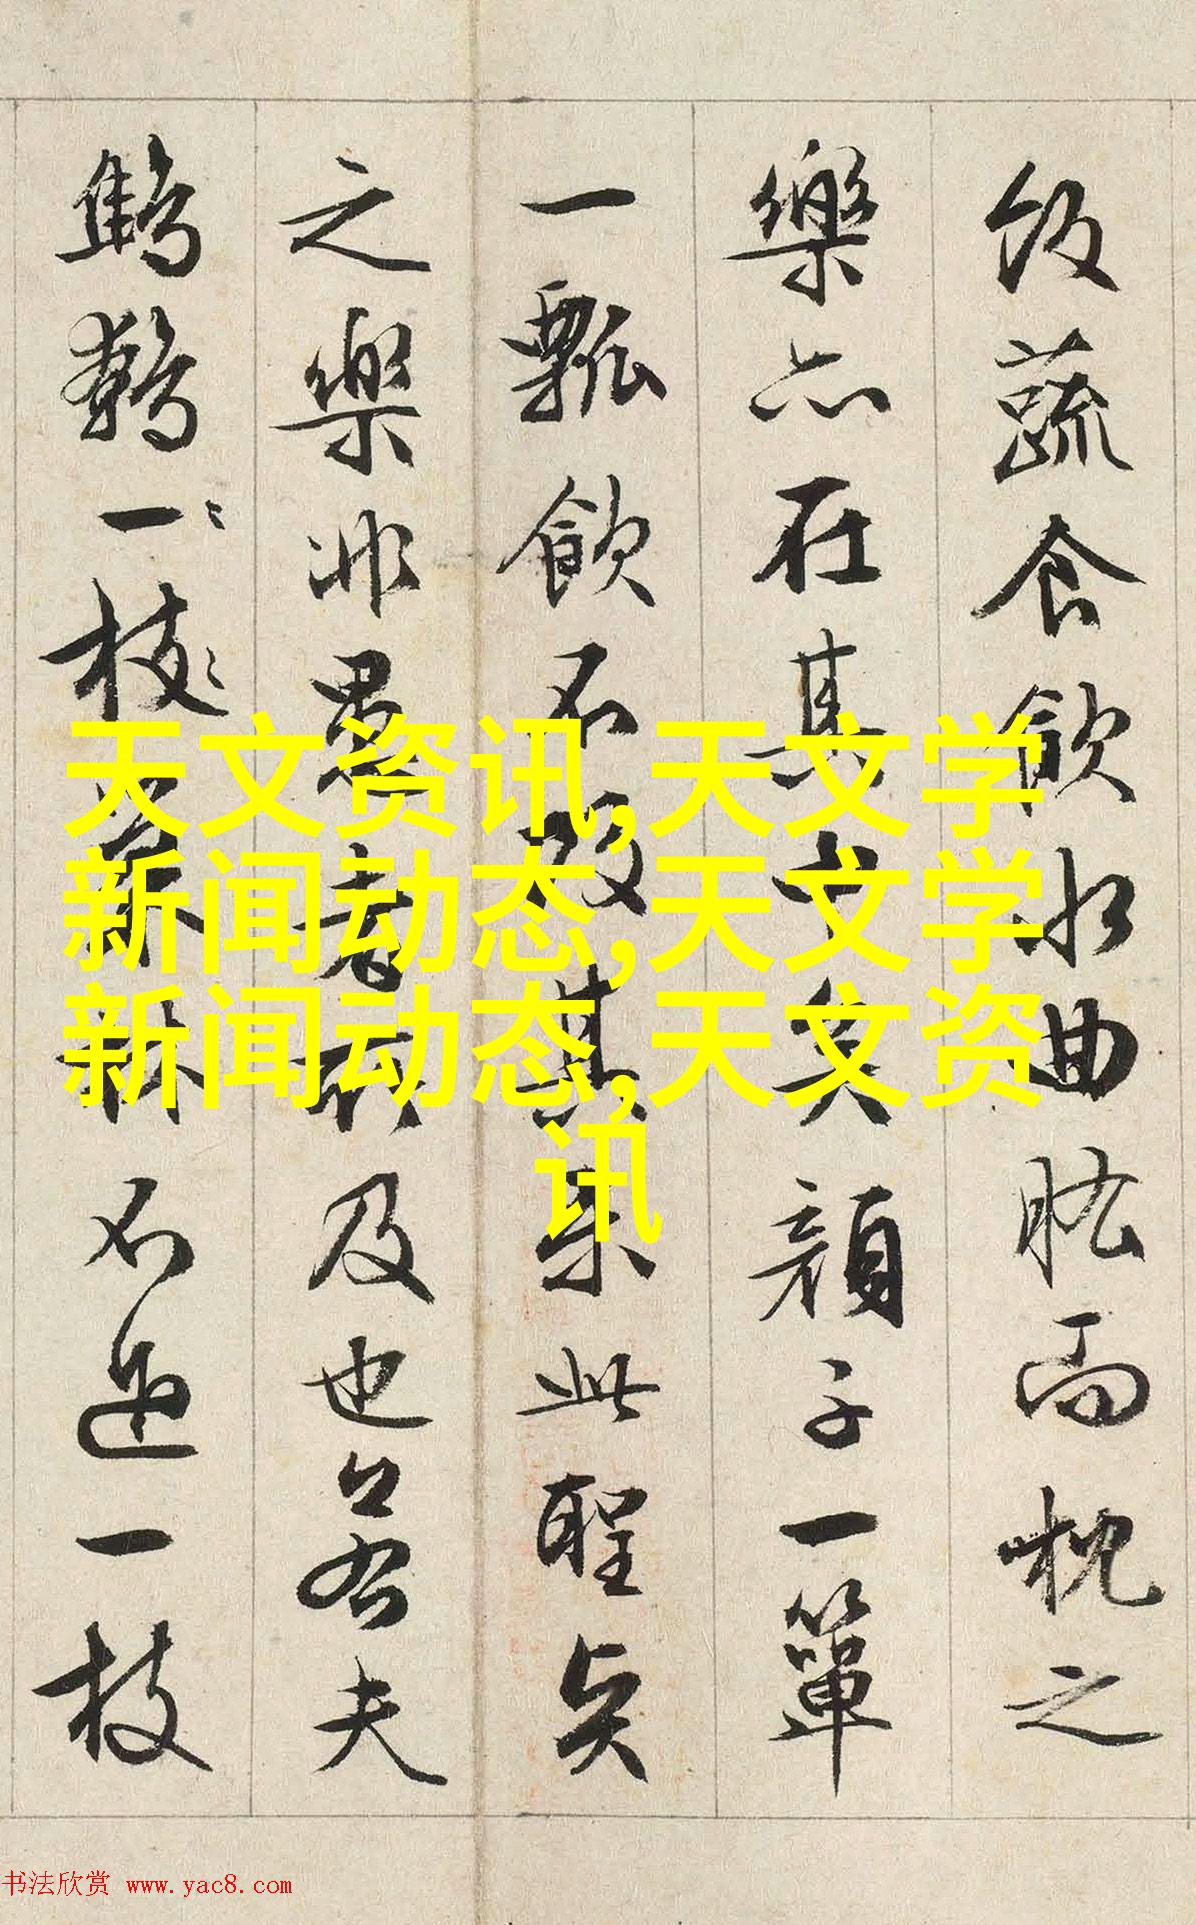 飯蔬食飲水曲肱而枕之
樂亦在其中矣顏子一簞
一瓢飲不改其樂此聖賢
之樂非愚者所及也若夫
鷦鷯一枝
不過一枝
天文资讯,天文学
新闻动态,天文学
新闻动态,天文资
讯
书法欣赏 www.yac8.com